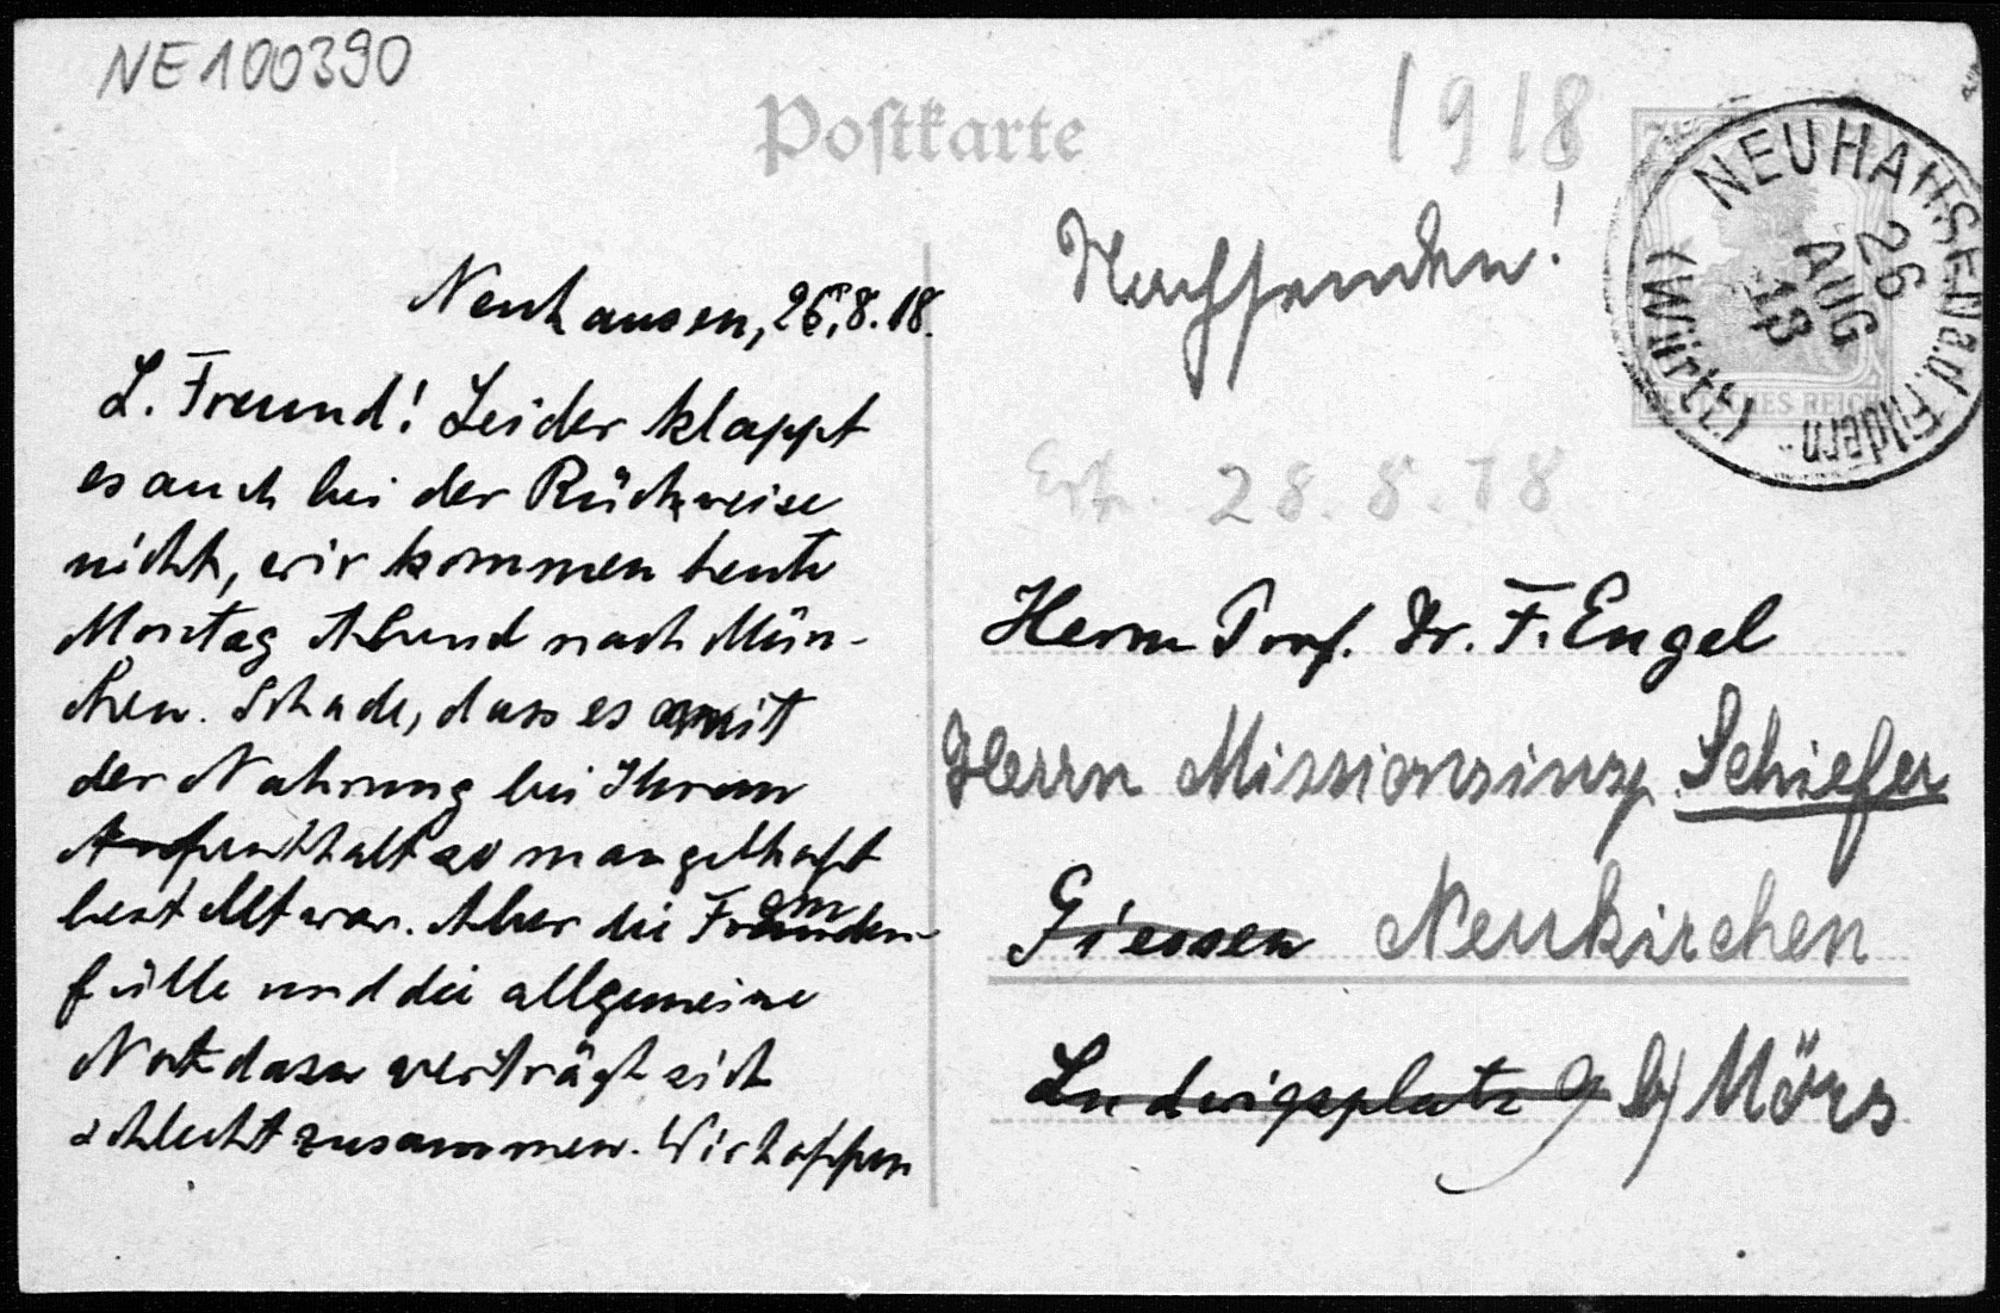 NE100390
Postkarte
1918
NEUHAUSEN a.d. Fildern
(Württ.)
26
AUG
18
DEUTSCHES REICH
Nachsenden!
Neuhausen, 26.8.18.
L. Freund! Leider klappt
es auch bei der Rückreise
nicht, wir kommen heute
Montag Abend nach Mün-
chen. Schade, dass es mit
der Nahrung bei Ihrem
Aufenthalt so mangelhaft
bestellt war. Aber die Fremden-
fülle und die allgemeine
Not dazu verträgt sich
schlecht zusammen. Wir hoffen
28.8.18
Herrn Prof. Dr. F. Engel
Herrn Missionsinsp. Schiefer
Giessen Neukirchen
Ludwigsplatz 9 b/ Mörs